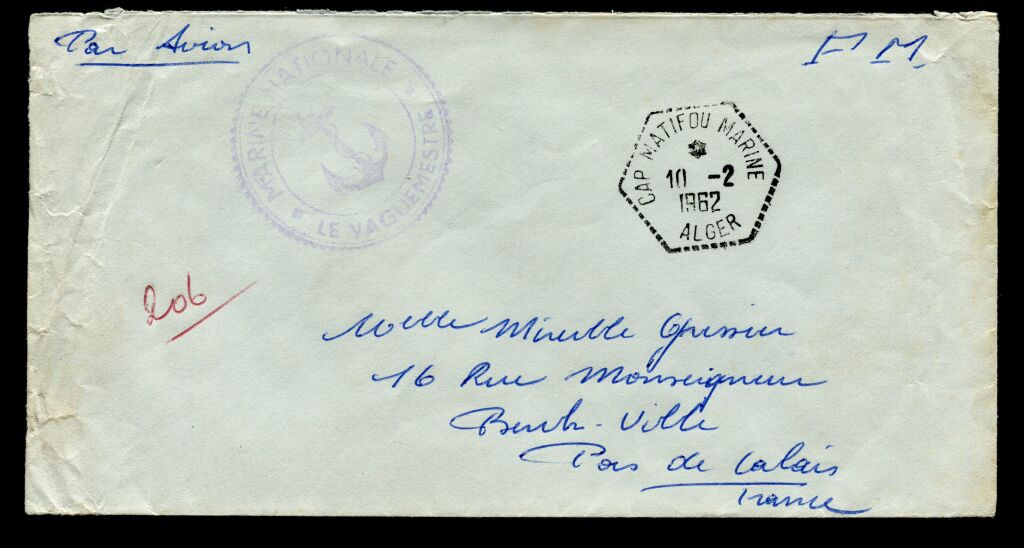 Par Avion
F M.
MARINE NATIONALE
LE VAGUEMESTRE
CAP MATIFOU MARINE
10 -2
1962
ALGER
206
Melle Mireille
16 Rue Monseigneur
Berck-Ville
Pas de Calais
France